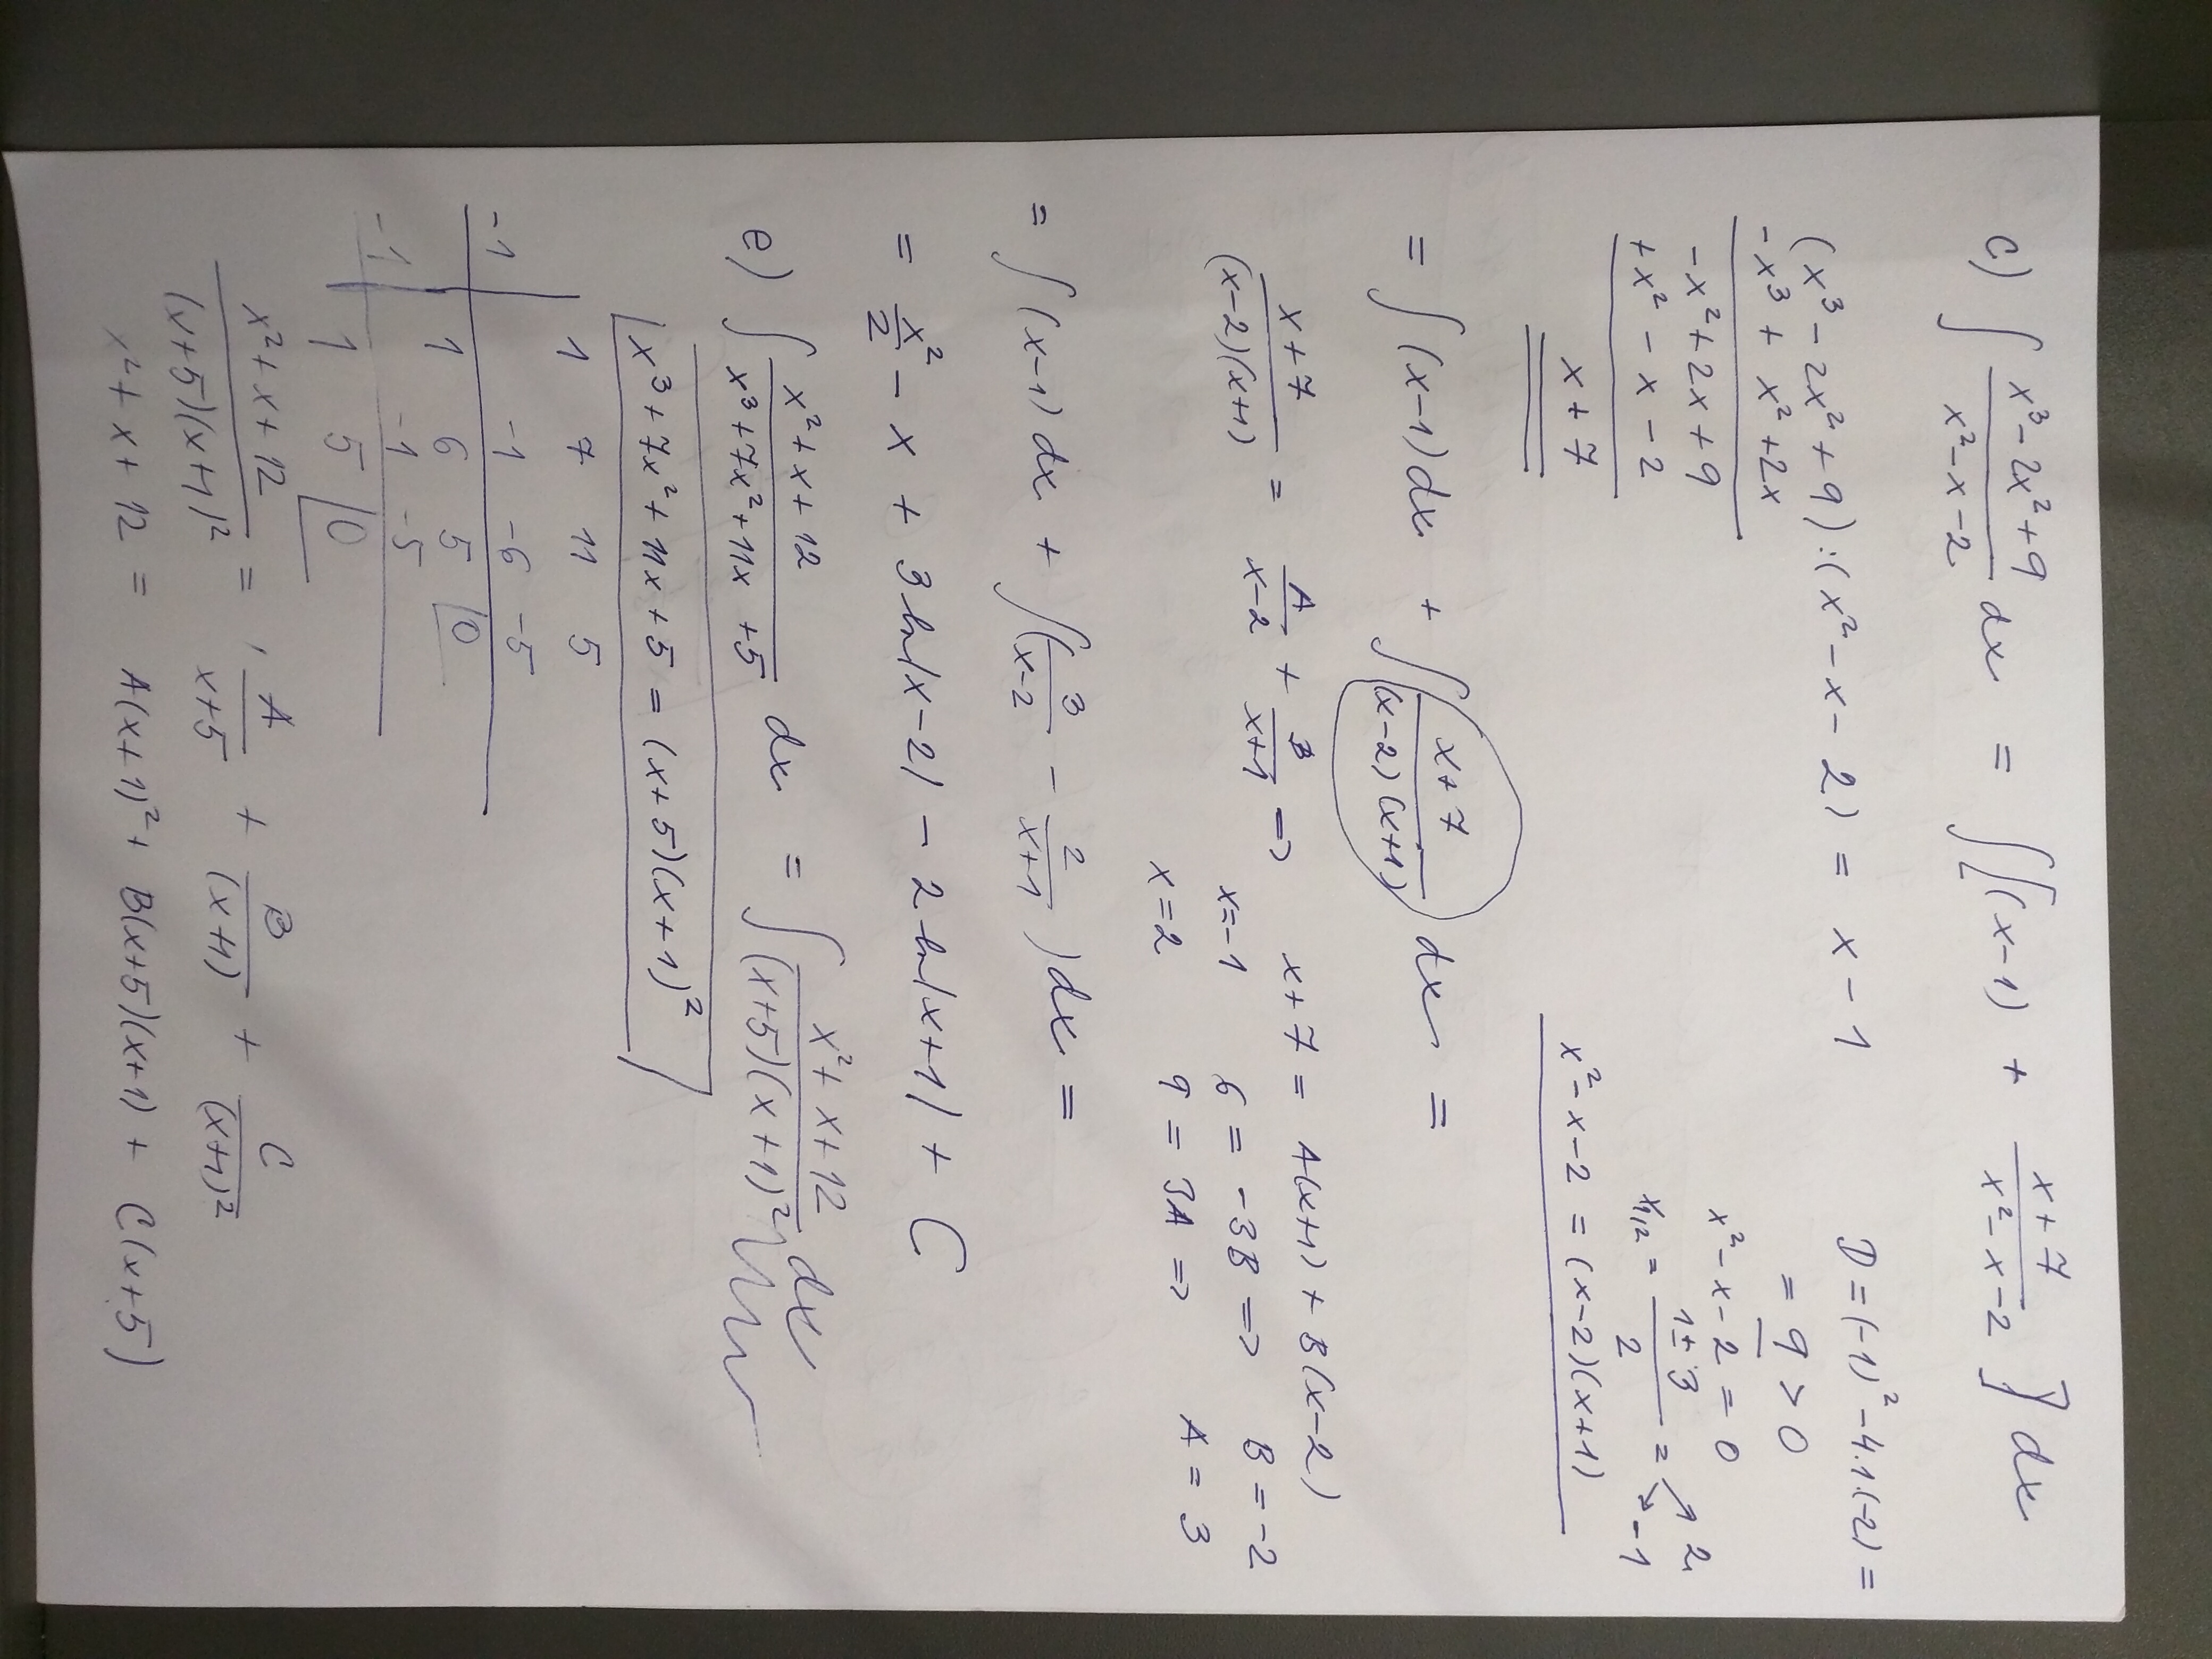 c) ∫ (x³-2x²+9)/(x²-x-2) dx = ∫[(x-1) + (x+7)/(x²-x-2)] dx
(x³-2x²+9):(x²-x-2) = x-1
-x³+x²+2x
-x²+2x+9
+x²-x-2
x+7
D=(-1)²-4.1.(-2)=
= 9 > 0
x²-x-2 = 0
x₁,₂ = (1±3)/2 = ↗ 2 ↘ -1
x²-x-2 = (x-2)(x+1)
= ∫(x-1)dx + ∫ (x+7)/((x-2)(x+1)) dx =
(x+7)/((x-2)(x+1)) = A/(x-2) + B/(x+1) => x+7 = A(x+1) + B(x-2)
x=-1 6 = -3B => B = -2
x=2 9 = 3A => A = 3
= ∫(x-1)dx + ∫(3/(x-2) - 2/(x+1))dx =
= x²/2 - x + 3ln|x-2| - 2ln|x+1| + C
e) ∫ (x²+x+12)/(x³+7x²+11x+5) dx = ∫ (x²+x+12)/((x+5)(x+1)²) dx
x³+7x²+11x+5 = (x+5)(x+1)²
1 7 11 5
-1 -1 -6 -5
1 6 5 0
-1 -1 -5
1 5 0
(x²+x+12)/((x+5)(x+1)²) = A/(x+5) + B/(x+1) + C/(x+1)²
x²+x+12 = A(x+1)² + B(x+5)(x+1) + C(x+5)